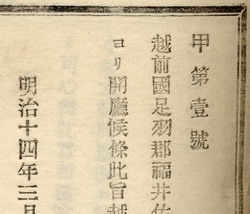 甲第壹號
越前國足羽郡福井佐
ヨリ開廳候條此旨越
明治十四年三月